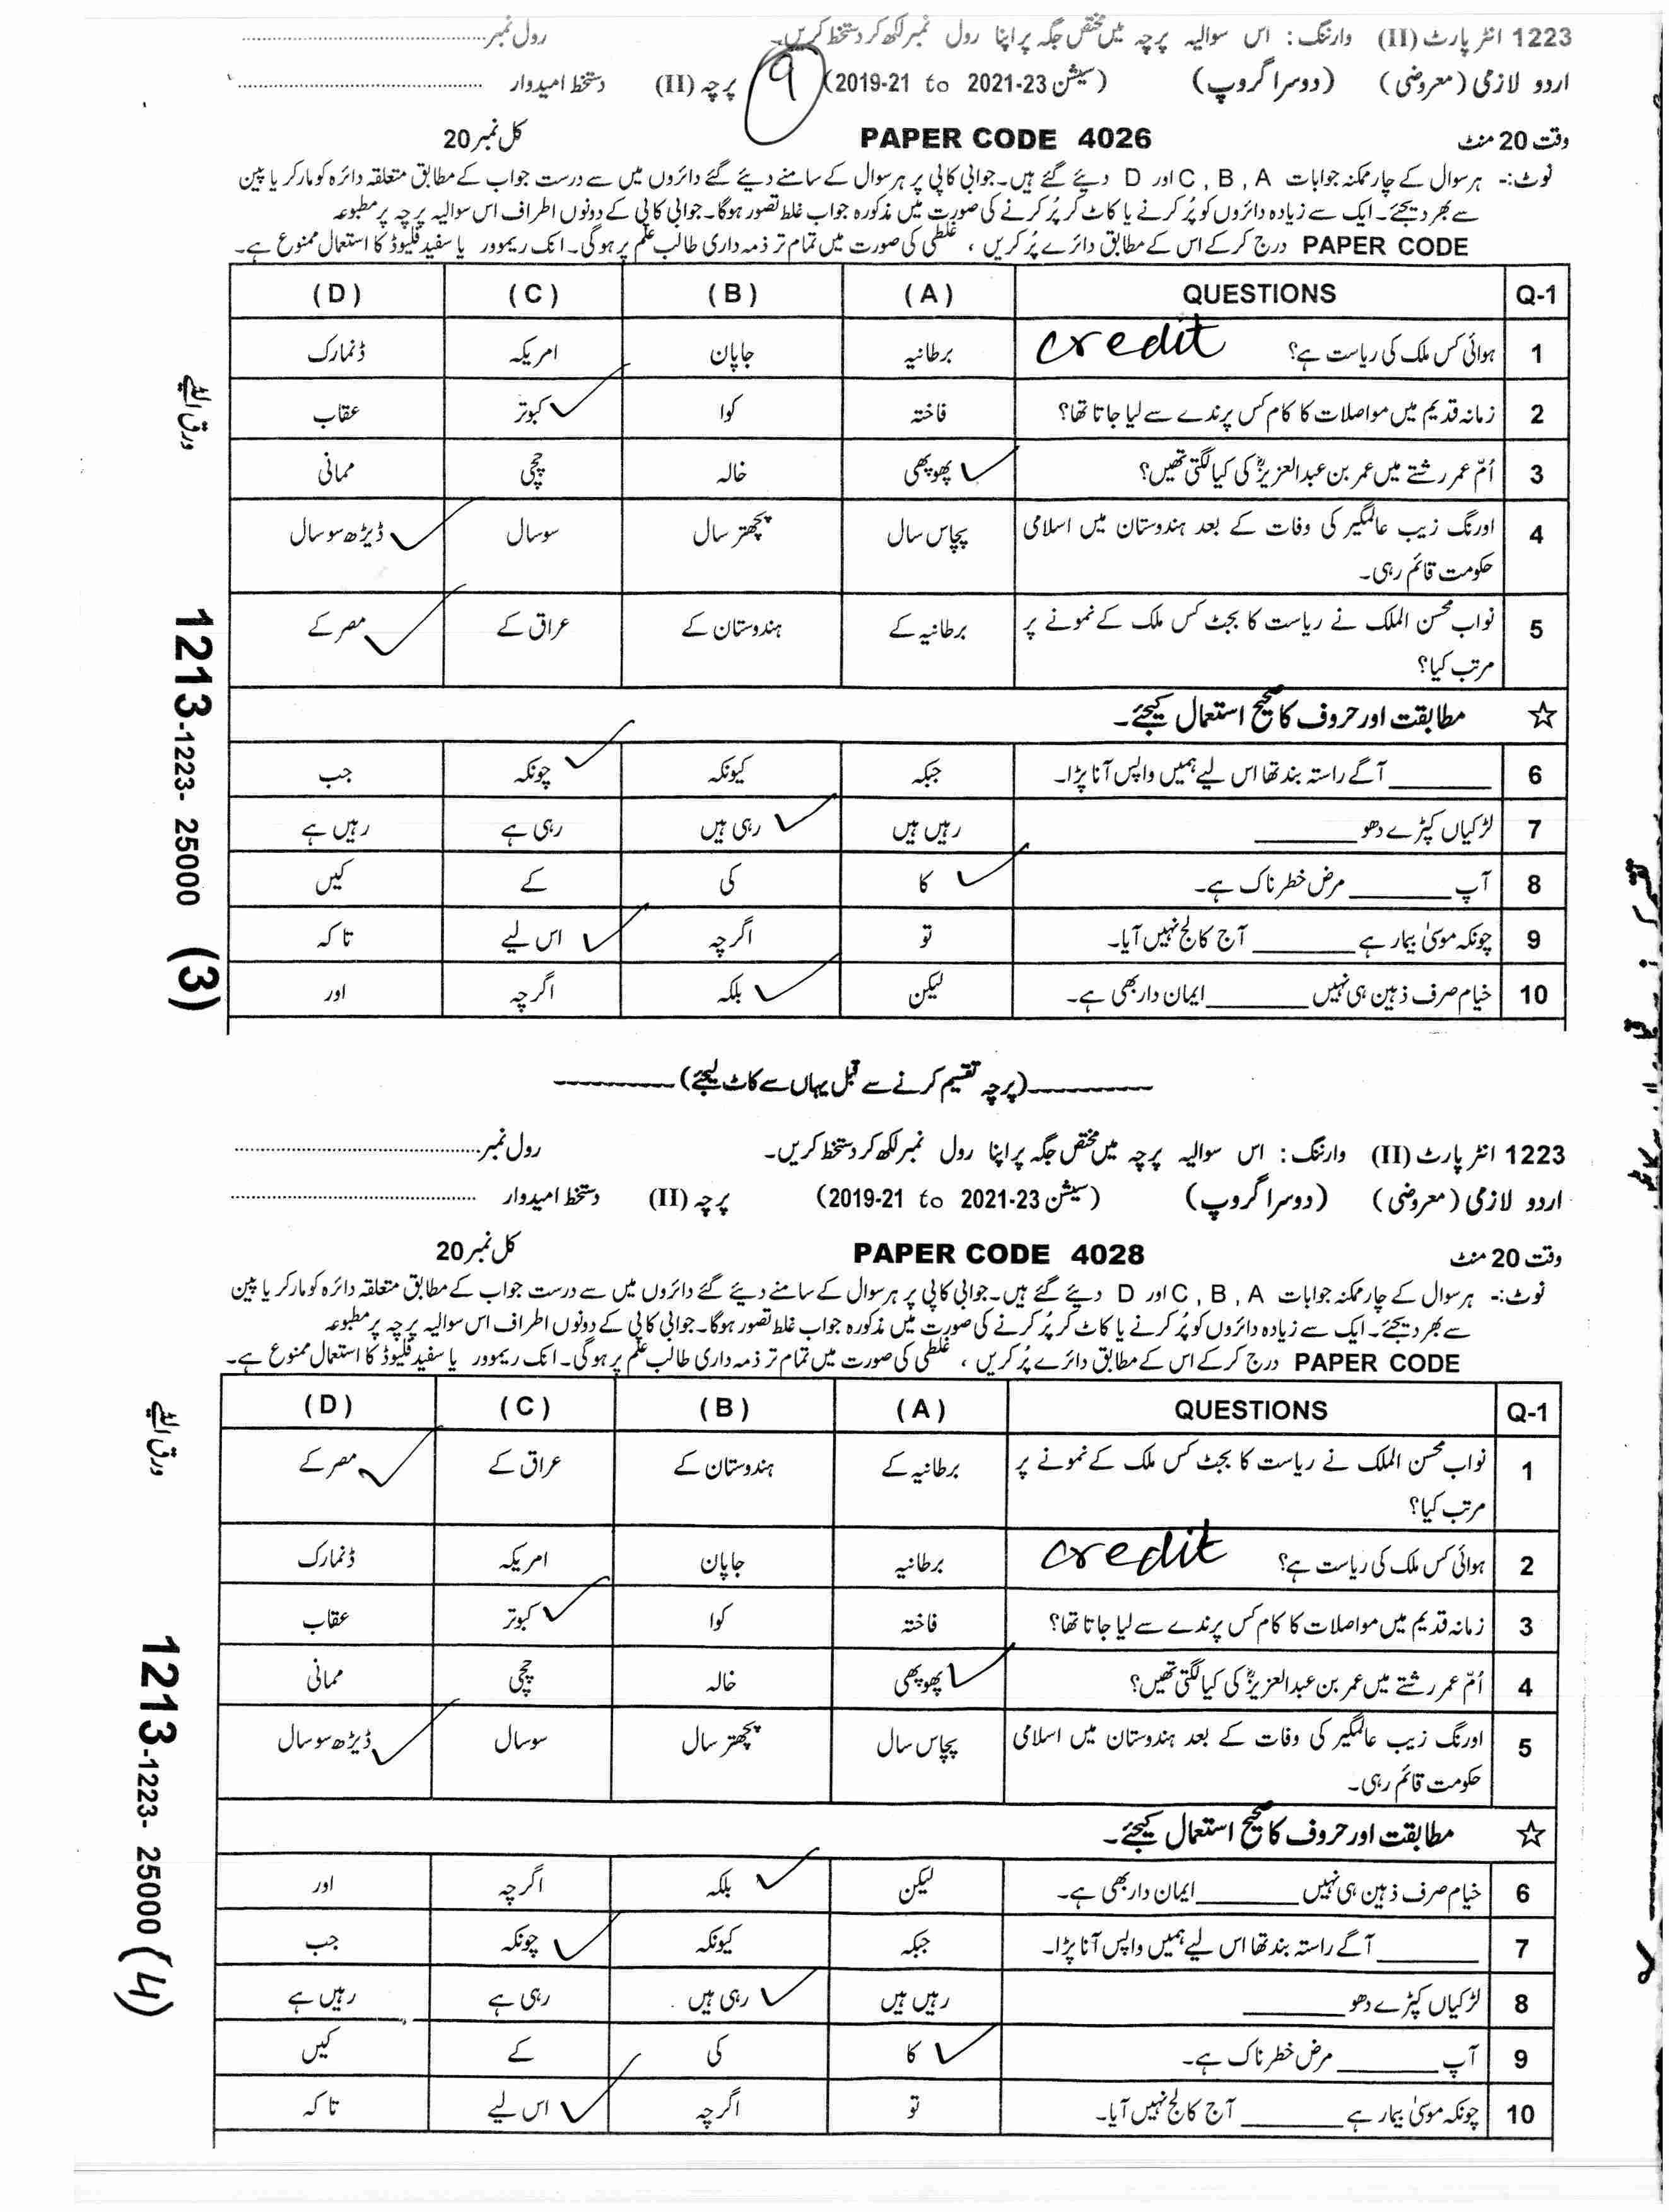 1223 انٹر پارٹ (II) وارننگ : اس سوالیہ پرچہ میں مختص جگہ پر اپنا رول نمبر لکھ کر دستخط کریں۔ رول نمبر
اردو لازمی (معروضی) (دوسرا گروپ) (سیشن 2019-21 to 2021-23) 9 پرچہ (II) دستخط امیدوار
وقت 20 منٹ PAPER CODE 4026 کل نمبر 20
نوٹ:- ہر سوال کے چار ممکنہ جوابات A , B , C اور D دیئے گئے ہیں۔ جوابی کاپی پر ہر سوال کے سامنے دیئے گئے دائروں میں سے درست جواب کے مطابق متعلقہ دائرہ کو مارکر یا پین
سے بھر دیجئے۔ ایک سے زیادہ دائروں کو پُر کرنے یا کاٹ کر پُر کرنے کی صورت میں مذکورہ جواب غلط تصور ہوگا۔ جوابی کاپی کے دونوں اطراف اس سوالیہ پرچہ پر مطبوعہ
PAPER CODE درج کر کے اس کے مطابق دائرے پُر کریں ، غلطی کی صورت میں تمام تر ذمہ داری طالب علم پر ہوگی۔ انک ریموور یا سفید فلیوڈ کا استعمال ممنوع ہے۔
Q-1 QUESTIONS (A) (B) (C) (D)
1 ہوائی کس ملک کی ریاست ہے؟ credit برطانیہ جاپان امریکہ ڈنمارک
2 زمانہ قدیم میں مواصلات کا کام کس پرندے سے لیا جاتا تھا؟ فاختہ کوا کبوتر عقاب
3 اُمّ عمر رشتے میں عمر بن عبدالعزیزؒ کی کیا لگتی تھیں؟ پھوپھی خالہ چچی ممانی
4 اورنگ زیب عالمگیر کی وفات کے بعد ہندوستان میں اسلامی پچاس سال پچھتر سال سو سال ڈیڑھ سو سال
حکومت قائم رہی۔
5 نواب محسن الملک نے ریاست کا بجٹ کس ملک کے نمونے پر برطانیہ کے ہندوستان کے عراق کے مصر کے
مرتب کیا؟
☆ مطابقت اور حروف کا صحیح استعمال کیجئے۔
6 ________ آگے راستہ بند تھا اس لیے ہمیں واپس آنا پڑا۔ جبکہ کیونکہ چونکہ جب
7 لڑکیاں کپڑے دھو ________ رہیں ہیں رہی ہیں رہی ہے رہیں ہے
8 آپ ________ مرض خطرناک ہے۔ کا کی کے کیں
9 چونکہ موسیٰ بیمار ہے ________ آج کالج نہیں آیا۔ تو اگرچہ اس لیے تا کہ
10 خیام صرف ذہین ہی نہیں ________ ایمان دار بھی ہے۔ لیکن بلکہ اگرچہ اور
ورق الٹیے
1213-1223- 25000 (3)
(پرچہ تقسیم کرنے سے قبل یہاں سے کاٹ لیجئے)
1223 انٹر پارٹ (II) وارننگ : اس سوالیہ پرچہ میں مختص جگہ پر اپنا رول نمبر لکھ کر دستخط کریں۔ رول نمبر
اردو لازمی (معروضی) (دوسرا گروپ) (سیشن 2019-21 to 2021-23) پرچہ (II) دستخط امیدوار
وقت 20 منٹ PAPER CODE 4028 کل نمبر 20
نوٹ:- ہر سوال کے چار ممکنہ جوابات A , B , C اور D دیئے گئے ہیں۔ جوابی کاپی پر ہر سوال کے سامنے دیئے گئے دائروں میں سے درست جواب کے مطابق متعلقہ دائرہ کو مارکر یا پین
سے بھر دیجئے۔ ایک سے زیادہ دائروں کو پُر کرنے یا کاٹ کر پُر کرنے کی صورت میں مذکورہ جواب غلط تصور ہوگا۔ جوابی کاپی کے دونوں اطراف اس سوالیہ پرچہ پر مطبوعہ
PAPER CODE درج کر کے اس کے مطابق دائرے پُر کریں ، غلطی کی صورت میں تمام تر ذمہ داری طالب علم پر ہوگی۔ انک ریموور یا سفید فلیوڈ کا استعمال ممنوع ہے۔
Q-1 QUESTIONS (A) (B) (C) (D)
1 نواب محسن الملک نے ریاست کا بجٹ کس ملک کے نمونے پر برطانیہ کے ہندوستان کے عراق کے مصر کے
مرتب کیا؟
2 ہوائی کس ملک کی ریاست ہے؟ credit برطانیہ جاپان امریکہ ڈنمارک
3 زمانہ قدیم میں مواصلات کا کام کس پرندے سے لیا جاتا تھا؟ فاختہ کوا کبوتر عقاب
4 اُمّ عمر رشتے میں عمر بن عبدالعزیزؒ کی کیا لگتی تھیں؟ پھوپھی خالہ چچی ممانی
5 اورنگ زیب عالمگیر کی وفات کے بعد ہندوستان میں اسلامی پچاس سال پچھتر سال سو سال ڈیڑھ سو سال
حکومت قائم رہی۔
☆ مطابقت اور حروف کا صحیح استعمال کیجئے۔
6 خیام صرف ذہین ہی نہیں ________ ایمان دار بھی ہے۔ لیکن بلکہ اگرچہ اور
7 ________ آگے راستہ بند تھا اس لیے ہمیں واپس آنا پڑا۔ جبکہ کیونکہ چونکہ جب
8 لڑکیاں کپڑے دھو ________ رہیں ہیں رہی ہیں رہی ہے رہیں ہے
9 آپ ________ مرض خطرناک ہے۔ کا کی کے کیں
10 چونکہ موسیٰ بیمار ہے ________ آج کالج نہیں آیا۔ تو اگرچہ اس لیے تا کہ
ورق الٹیے
1213-1223- 25000 (4)